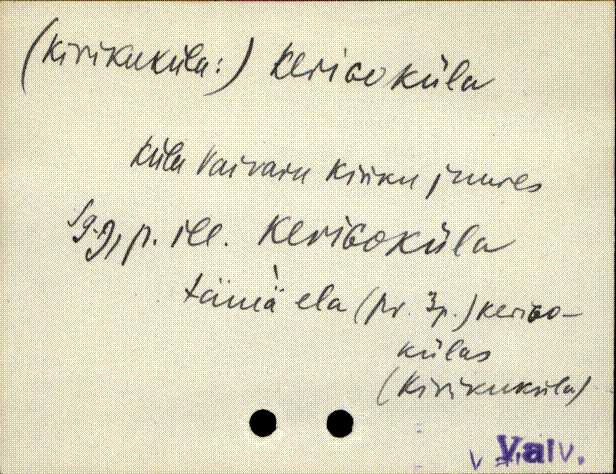 (Kirikuküla:) KeriGoküla
küla Vaivara kiriku juures
Sg. g, p. ill. KeriGoküla
tämä ela (pr. 3p.) keriGo-
külas
(Kirikuküla)
Vaiv.